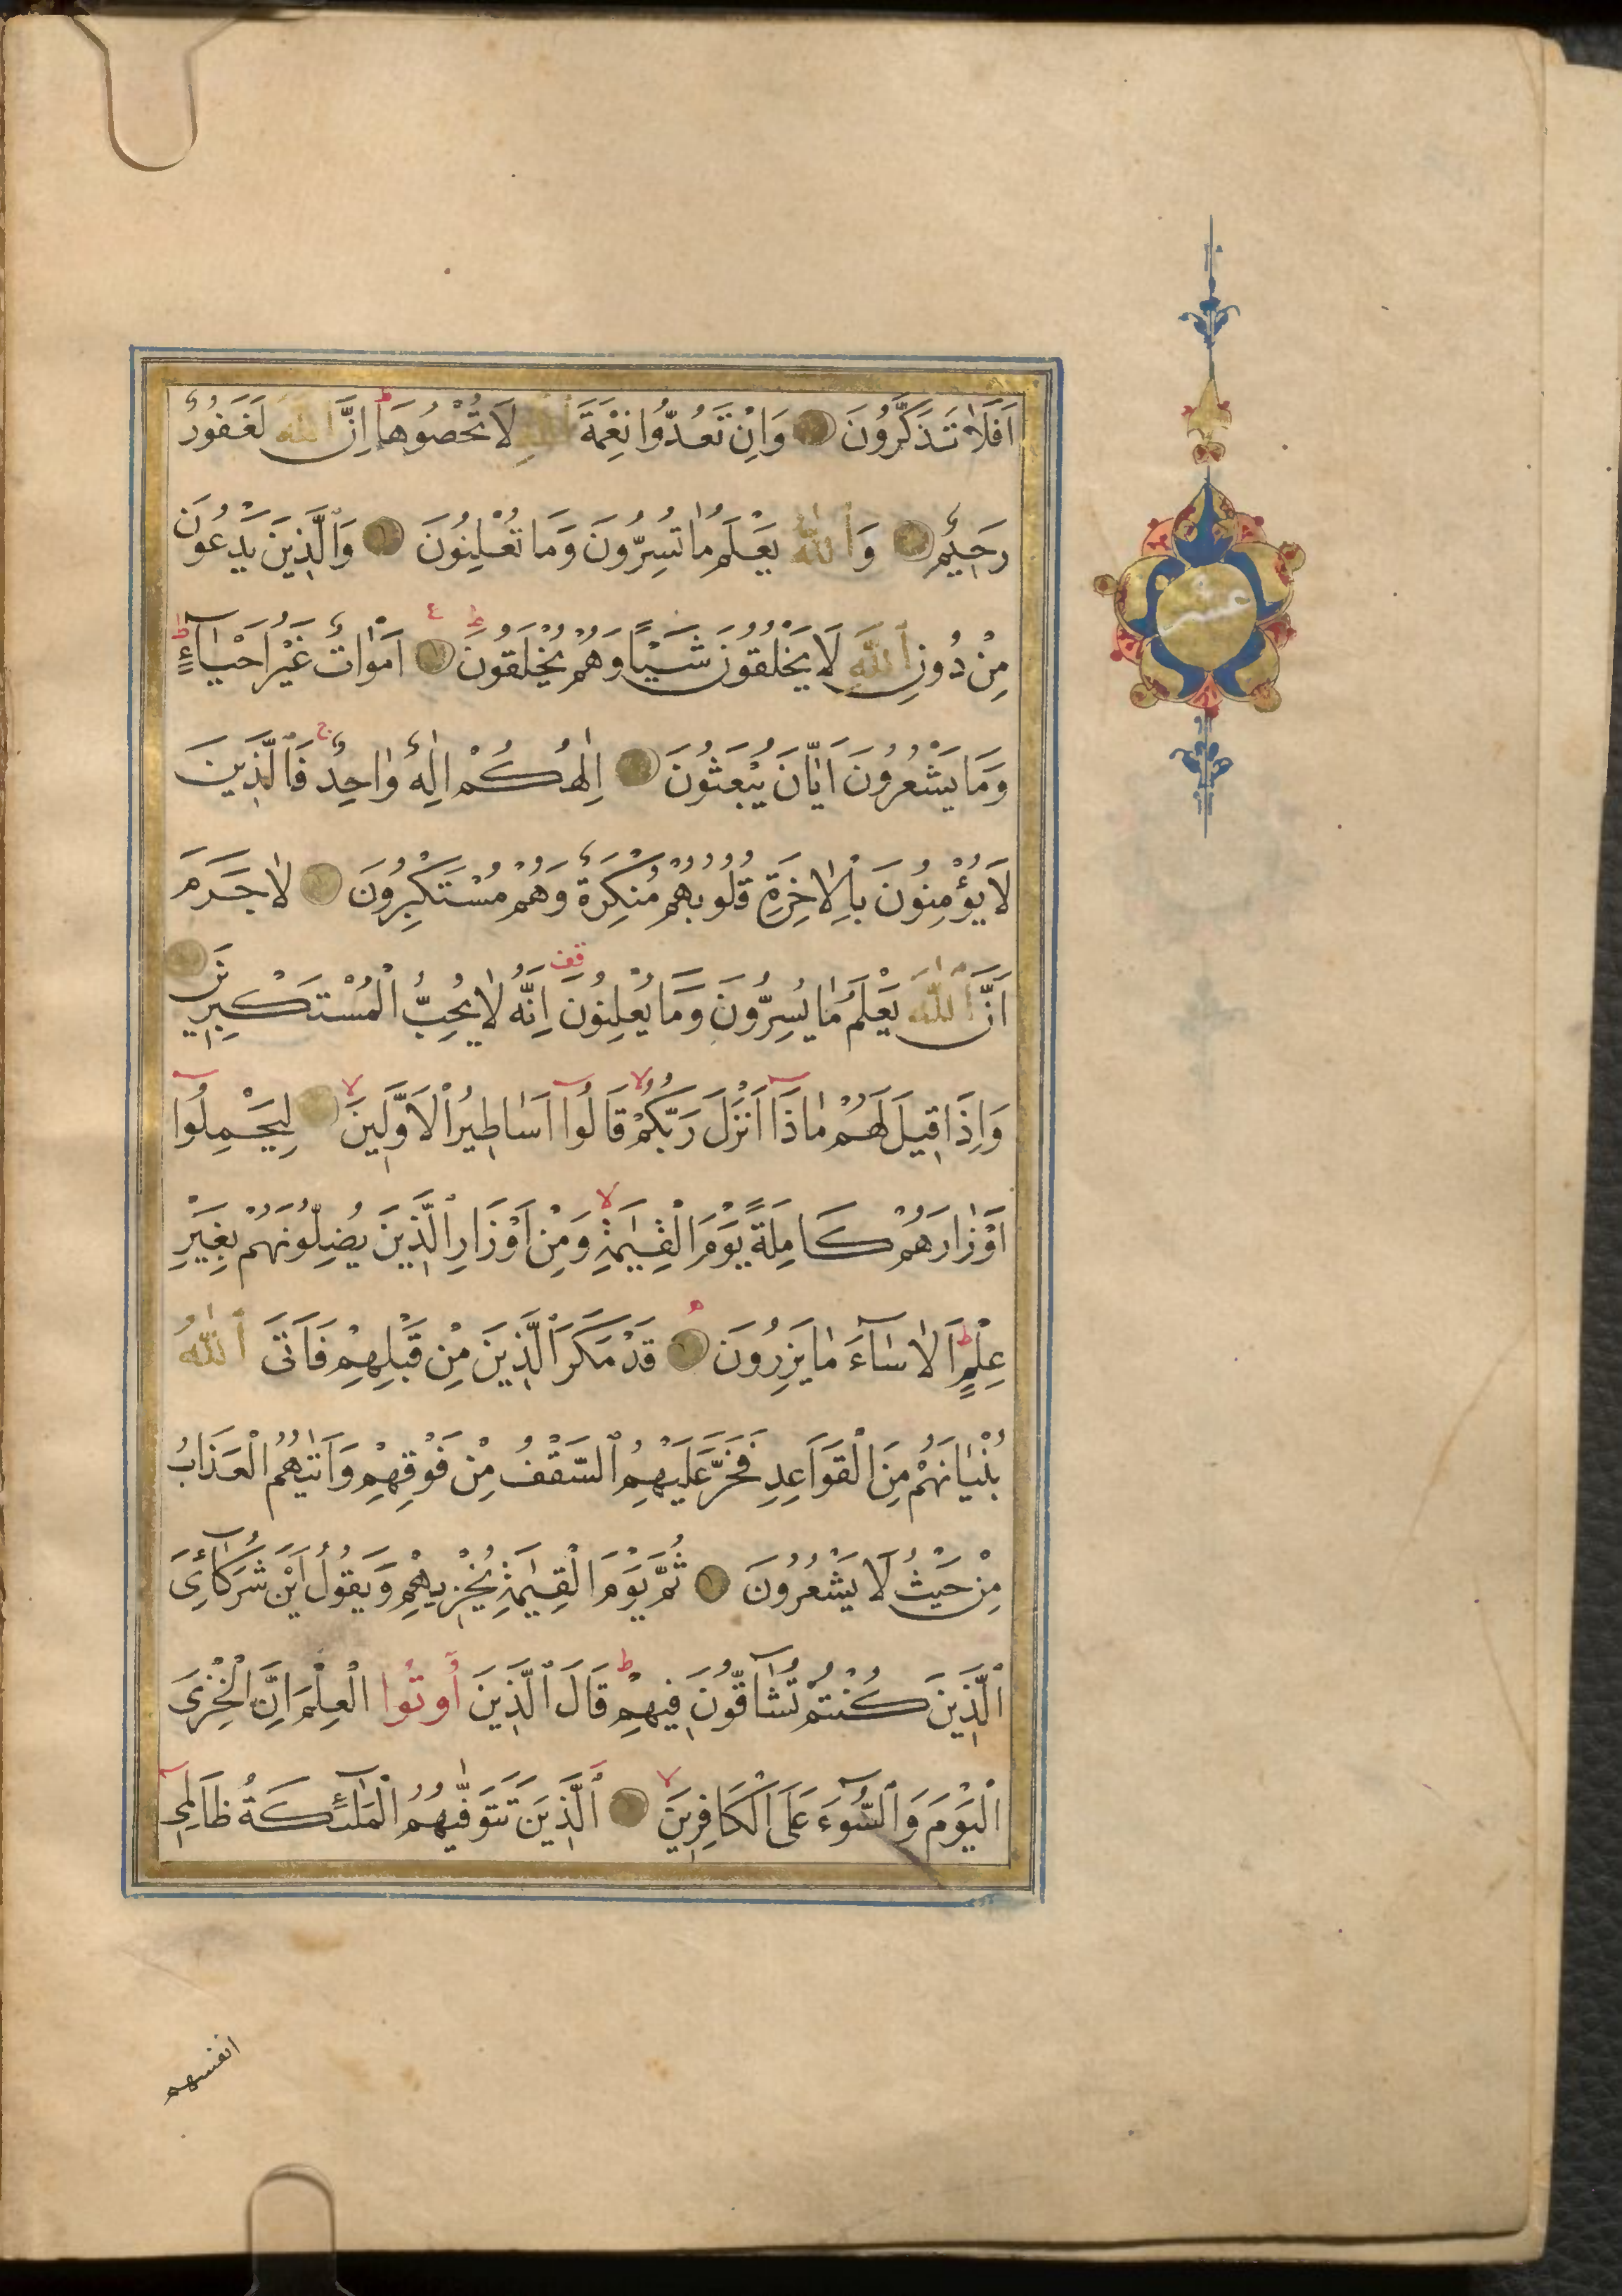 اَفَلَا تَذَكَّرُونَ وَاِنْ تَعُدُّوا نِعْمَةَ ٱللّٰهِ لَا تُحْصُوهَا ط اِنَّ ٱللّٰهَ لَغَفُورٌ
رَحِيمٌ وَٱللّٰهُ يَعْلَمُ مَا تُسِرُّونَ وَمَا تُعْلِنُونَ وَالَّذِينَ يَدْعُونَ
مِنْ دُونِ ٱللّٰهِ لَا يَخْلُقُونَ شَيْـًٔا وَهُمْ يُخْلَقُونَ ط ع اَمْوَاتٌ غَيْرُ اَحْيَآءٍ ط
وَمَا يَشْعُرُونَ اَيَّانَ يُبْعَثُونَ اِلٰهُكُمْ اِلٰهٌ وَاحِدٌ ج فَالَّذِينَ
لَا يُؤْمِنُونَ بِالْاٰخِرَةِ قُلُوبُهُمْ مُنْكِرَةٌ وَهُمْ مُسْتَكْبِرُونَ لَا جَرَمَ
اَنَّ ٱللّٰهَ يَعْلَمُ مَا يُسِرُّونَ وَمَا يُعْلِنُونَ قف اِنَّهُ لَا يُحِبُّ الْمُسْتَكْبِرِينَ
وَاِذَا قِيلَ لَهُمْ مَاذَآ اَنْزَلَ رَبُّكُمْ لا قَالُوٓا اَسَاطِيرُ الْاَوَّلِينَ لا لِيَحْمِلُوٓا
اَوْزَارَهُمْ كَامِلَةً يَوْمَ الْقِيٰمَةِ لا وَمِنْ اَوْزَارِ الَّذِينَ يُضِلُّونَهُمْ بِغَيْرِ
عِلْمٍ ط اَلَا سَآءَ مَا يَزِرُونَ ه قَدْ مَكَرَ الَّذِينَ مِنْ قَبْلِهِمْ فَاَتَى ٱللّٰهُ
بُنْيَانَهُمْ مِنَ الْقَوَاعِدِ فَخَرَّ عَلَيْهِمُ السَّقْفُ مِنْ فَوْقِهِمْ وَاَتٰيهُمُ الْعَذَابُ
مِنْ حَيْثُ لَا يَشْعُرُونَ ثُمَّ يَوْمَ الْقِيٰمَةِ يُخْزِيهِمْ وَيَقُولُ اَيْنَ شُرَكَآئِىَ
الَّذِينَ كُنْتُمْ تُشَآقُّونَ فِيهِمْ ط قَالَ الَّذِينَ اُوتُوا الْعِلْمَ اِنَّ الْخِزْىَ
الْيَوْمَ وَالسُّوٓءَ عَلَى الْكَافِرِينَ لا اَلَّذِينَ تَتَوَفّٰيهُمُ الْمَلٰٓئِكَةُ ظَالِمِىٓ
انفسهم